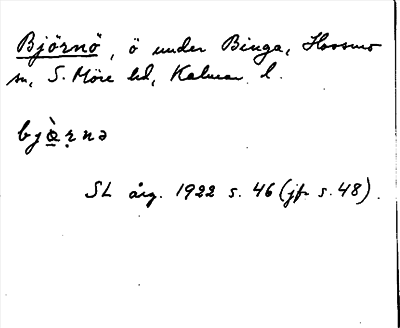 Björnö, ö under Binga, Hossmo
sn, S. Möre hd, Kalmar l.
bjɷ̀rnə
SL årg. 1922 s. 46 (jfr s. 48).